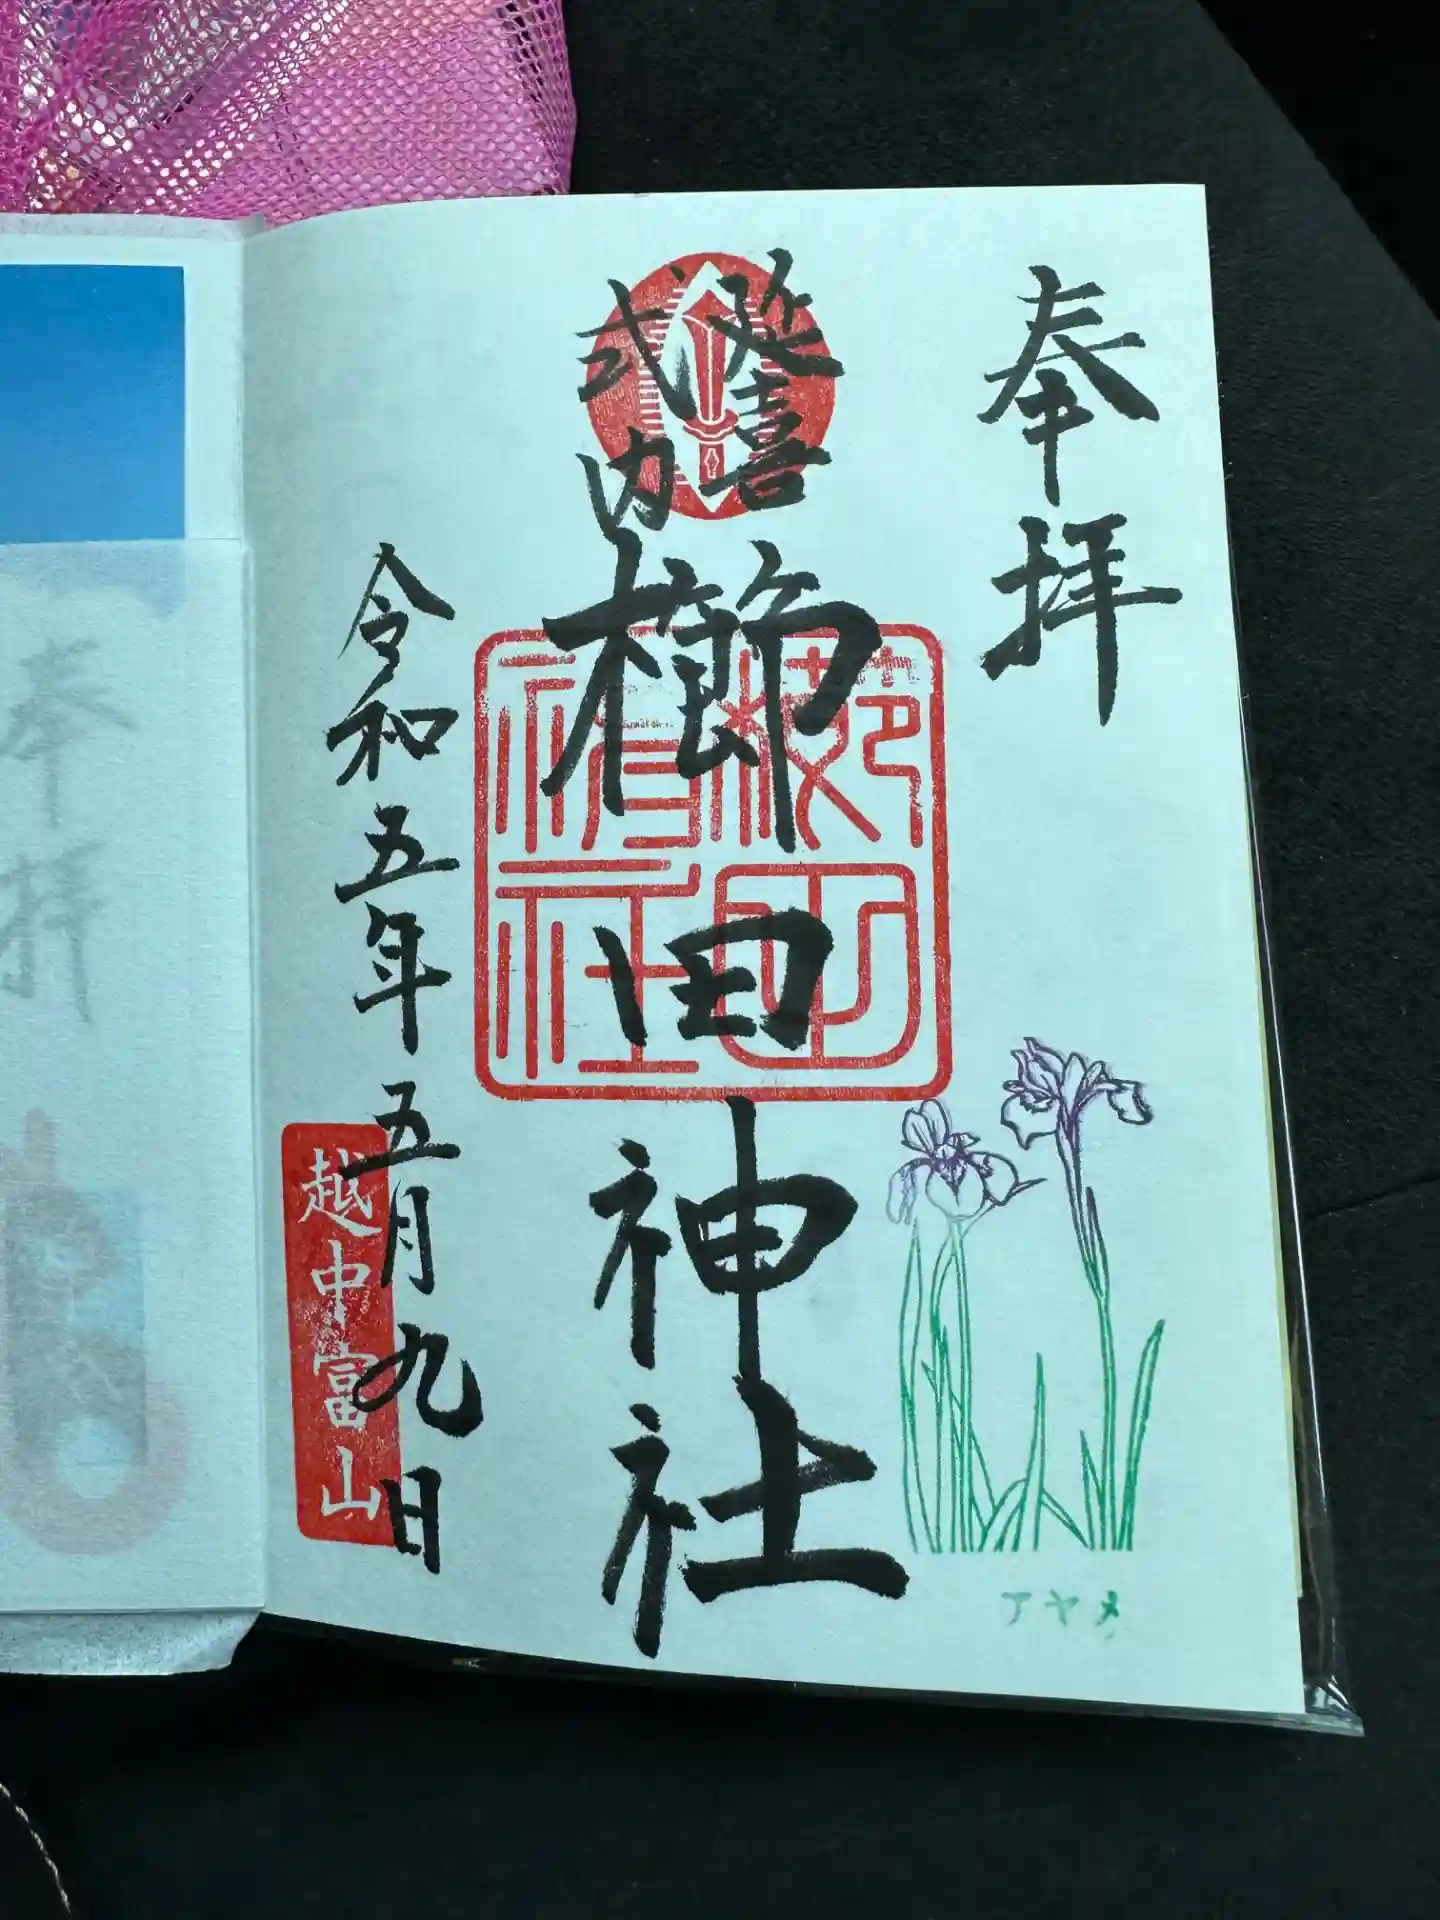 奉拝
延喜
式内
櫛田神社
櫛田
神社
令和五年五月九日
越中富山
アヤメ
奉拝